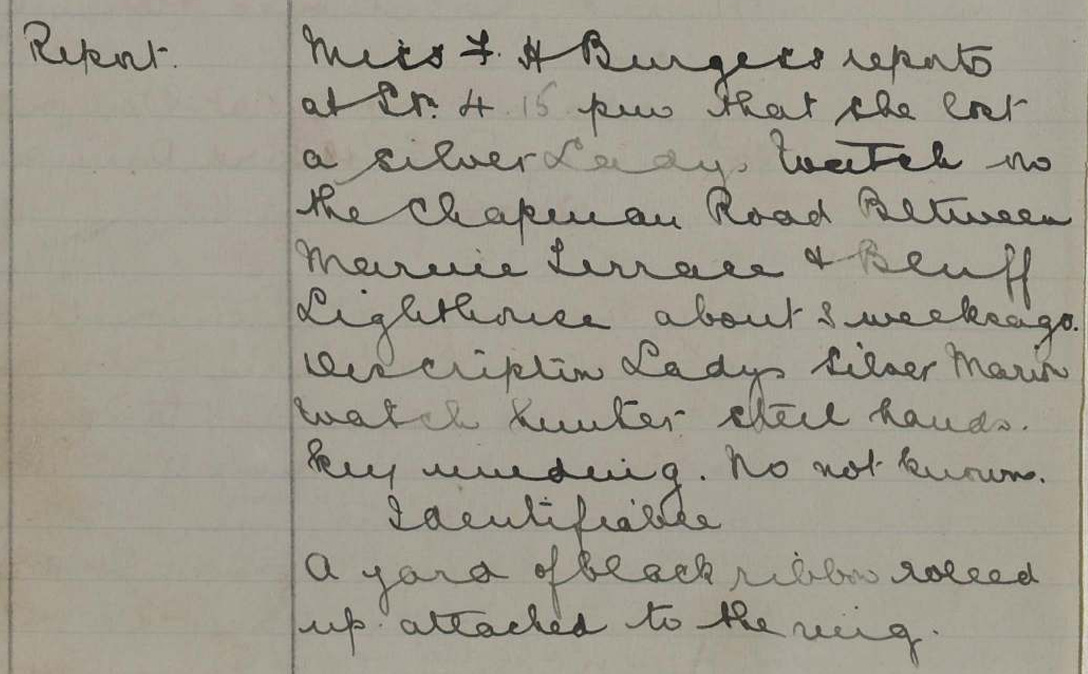 Report. Miss F. H Burgess reports
at Stn. 4.15 pm that she lost
a silver Ladys Watch no
the Chapman Road Between
Marine Terrace & Bluff
Lighthouse about 3 weeks ago.
Description Ladys Silver
watch hunter steel hands.
key winding. No not known.
Identifiable
A yard of black ribbon rolled
up attached to the ring.